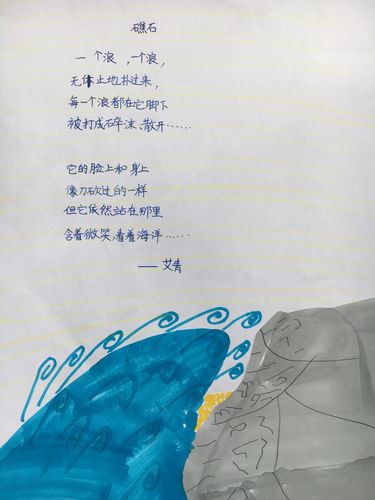 礁石
一个浪，一个浪，
无休止地扑过来，
每一个浪都在它脚下
被打成碎沫、散开……
它的脸上和身上
像刀砍过的一样
但它依然站在那里
含着微笑，看着海洋……
——艾青